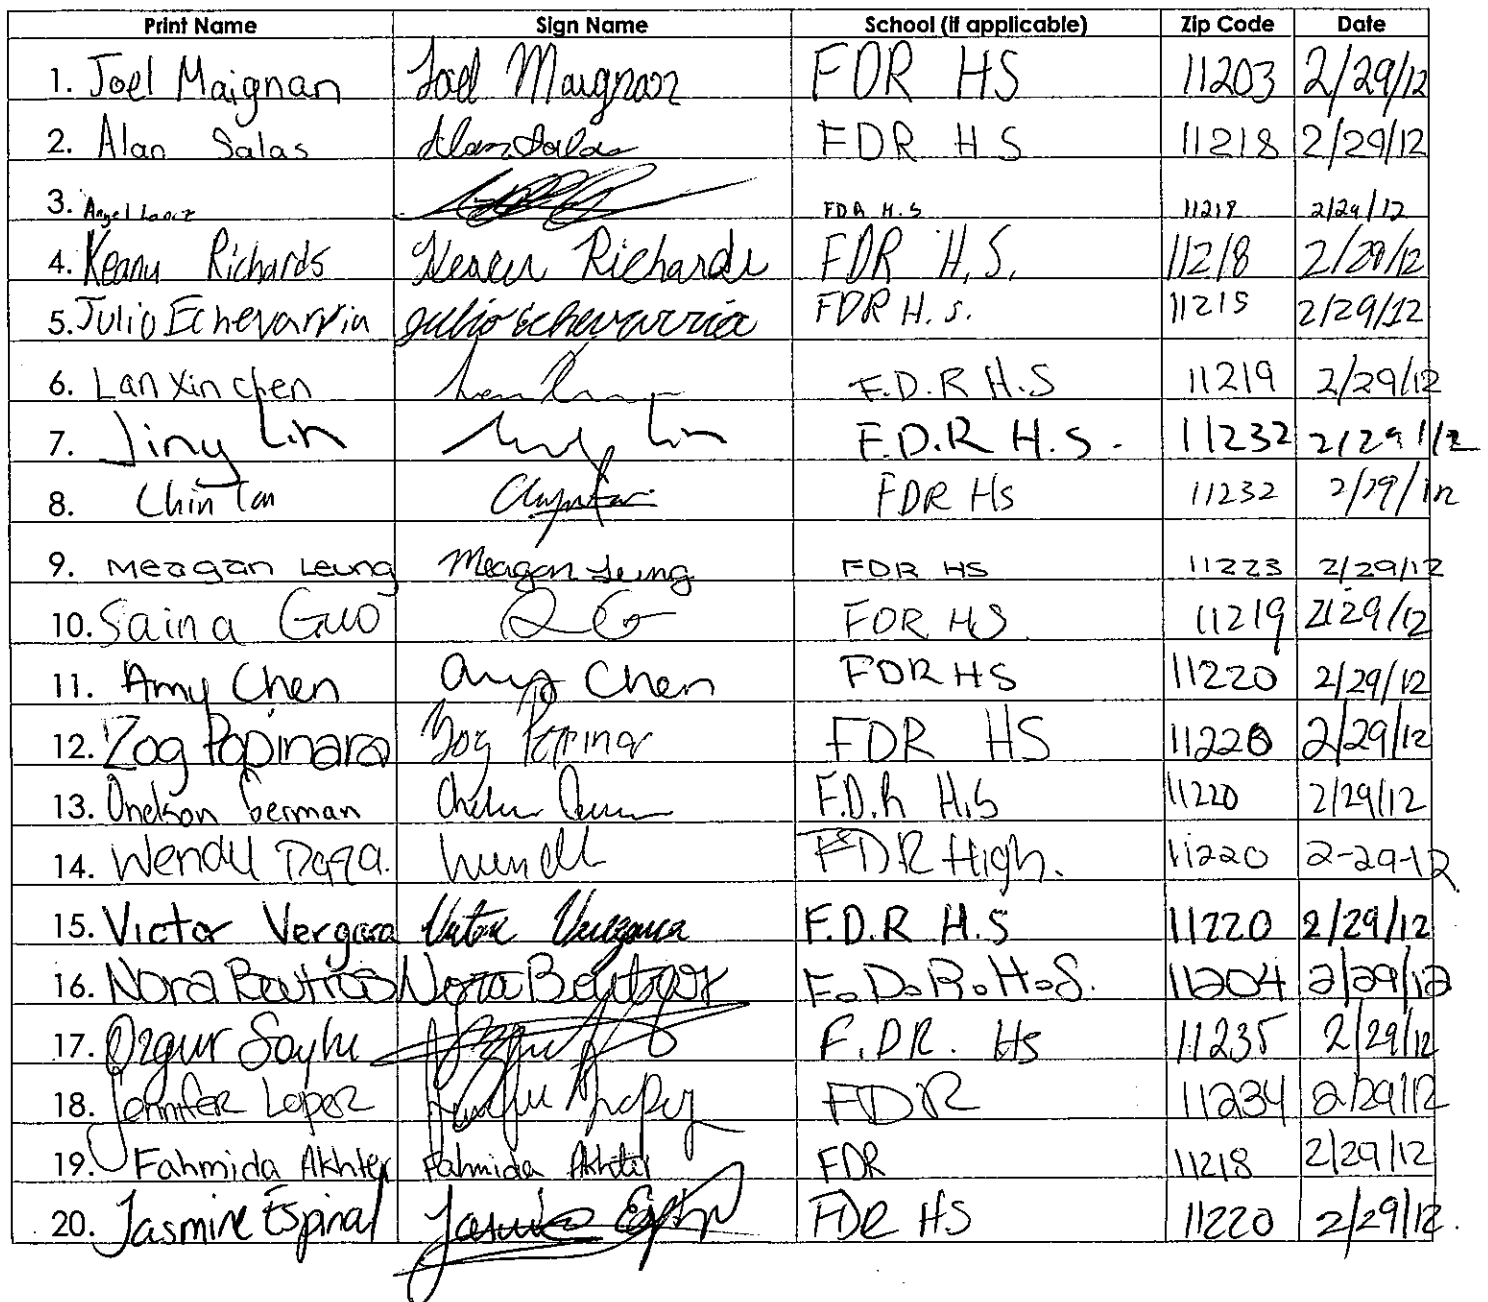 Print Name Sign Name School (if applicable) Zip Code Date
1. Joel Maignan Joel Maignan FDR HS 11203 2/29/12
2. Alan Salas Alan Salas FDR H S 11218 2/29/12
3. Angel FDR H.S 11218 2/29/12
4. Keanu Richards Keanu Richards FDR H.S. 11218 2/29/12
5. Julio Echevarria Julio Echevarria FDR H.s. 11215 2/29/12
6. Lan Xin chen F.D.R H.S 11219 2/29/12
7. Jiny Lin Lin F.D.R H.S. 11232 2/29/12
8. Chin Tan FDR Hs 11232 2/29/12
9. Meagan Leung Meagan Leung FDR HS 11223 2/29/12
10. Saina Guo FDR HS 11219 2/29/12
11. Amy Chen Amy Chen FDR HS 11220 2/29/12
12. Zog Papinara Zog FDR HS 11220 2/29/12
13. Onelson German F.D.R H.S 11220 2/29/12
14. Wendy FDR High. 11220 2-29-12
15. Victor Vergara Victor Vergara F.D.R H.S 11220 2/29/12
16. Nora Nora F.D.R.H.S. 11204 2/29/12
17. Ozgur Soylu F.D.R. Hs 11235 2/29/12
18. Jennifer Lopez Jennifer Lopez FDR 11234 2/29/12
19. Fahmida Akhter Fahmida Akhter FDR 11218 2/29/12
20. Jasmine Espinal Jasmine FDR HS 11220 2/29/12.